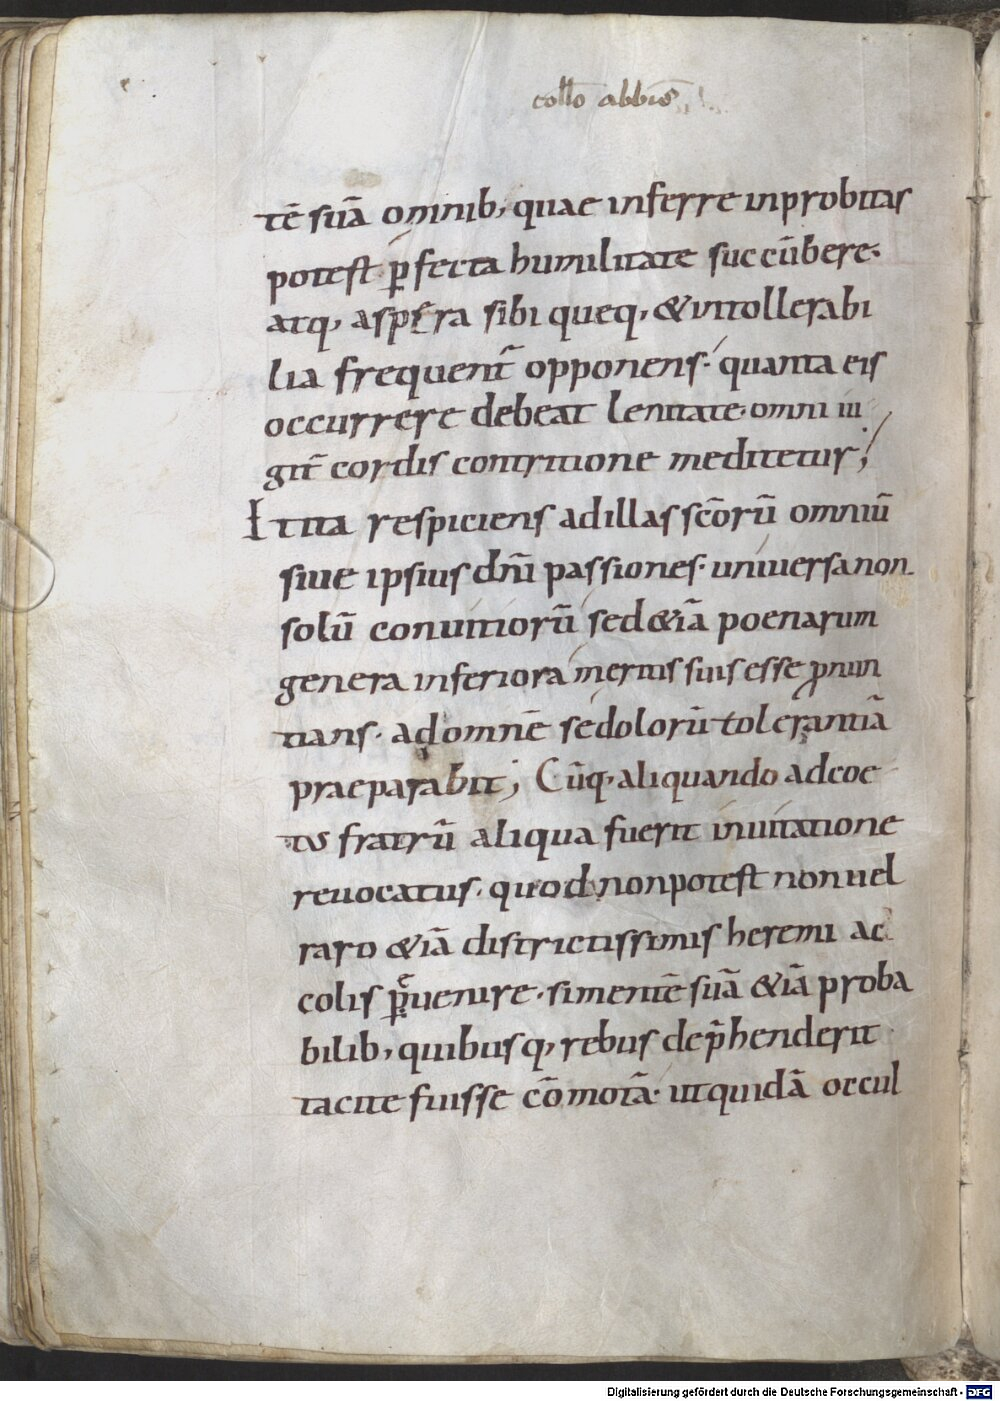 collo abbis
tē suā omnib; quae inferre inprobitas
potest p̄fecta humilitate succūbere·
atq; aspera sibi queq; & intollerabi
lia frequent̄ opponens· quanta eis
occurrere debeat lenitate· omni iu
git̄ cordis contritione meditetur;
Itita respiciens ad illas scōrū omniū
siue ipsius dn̄i passiones· uniuersa non
solū conuitiorū sed &iā poenarum
genera inferiora meritis suis esse pronun
tians· ad omnē se dolorū tolerantiā
praeparabit; Cūq; aliquando ad coe
tus fratrū aliqua fuerit inuitatione
reuocatus· quod non potest non uel
raro &iā districtissimis heremi ac
colis p̱uenire· si mentē suā &iā proba
bilib; quibusq; rebus dep̄henderit
tacite fuisse cōmotā· ut quidā occul
Digitalisierung gefördert durch die Deutsche Forschungsgemeinschaft - DFG